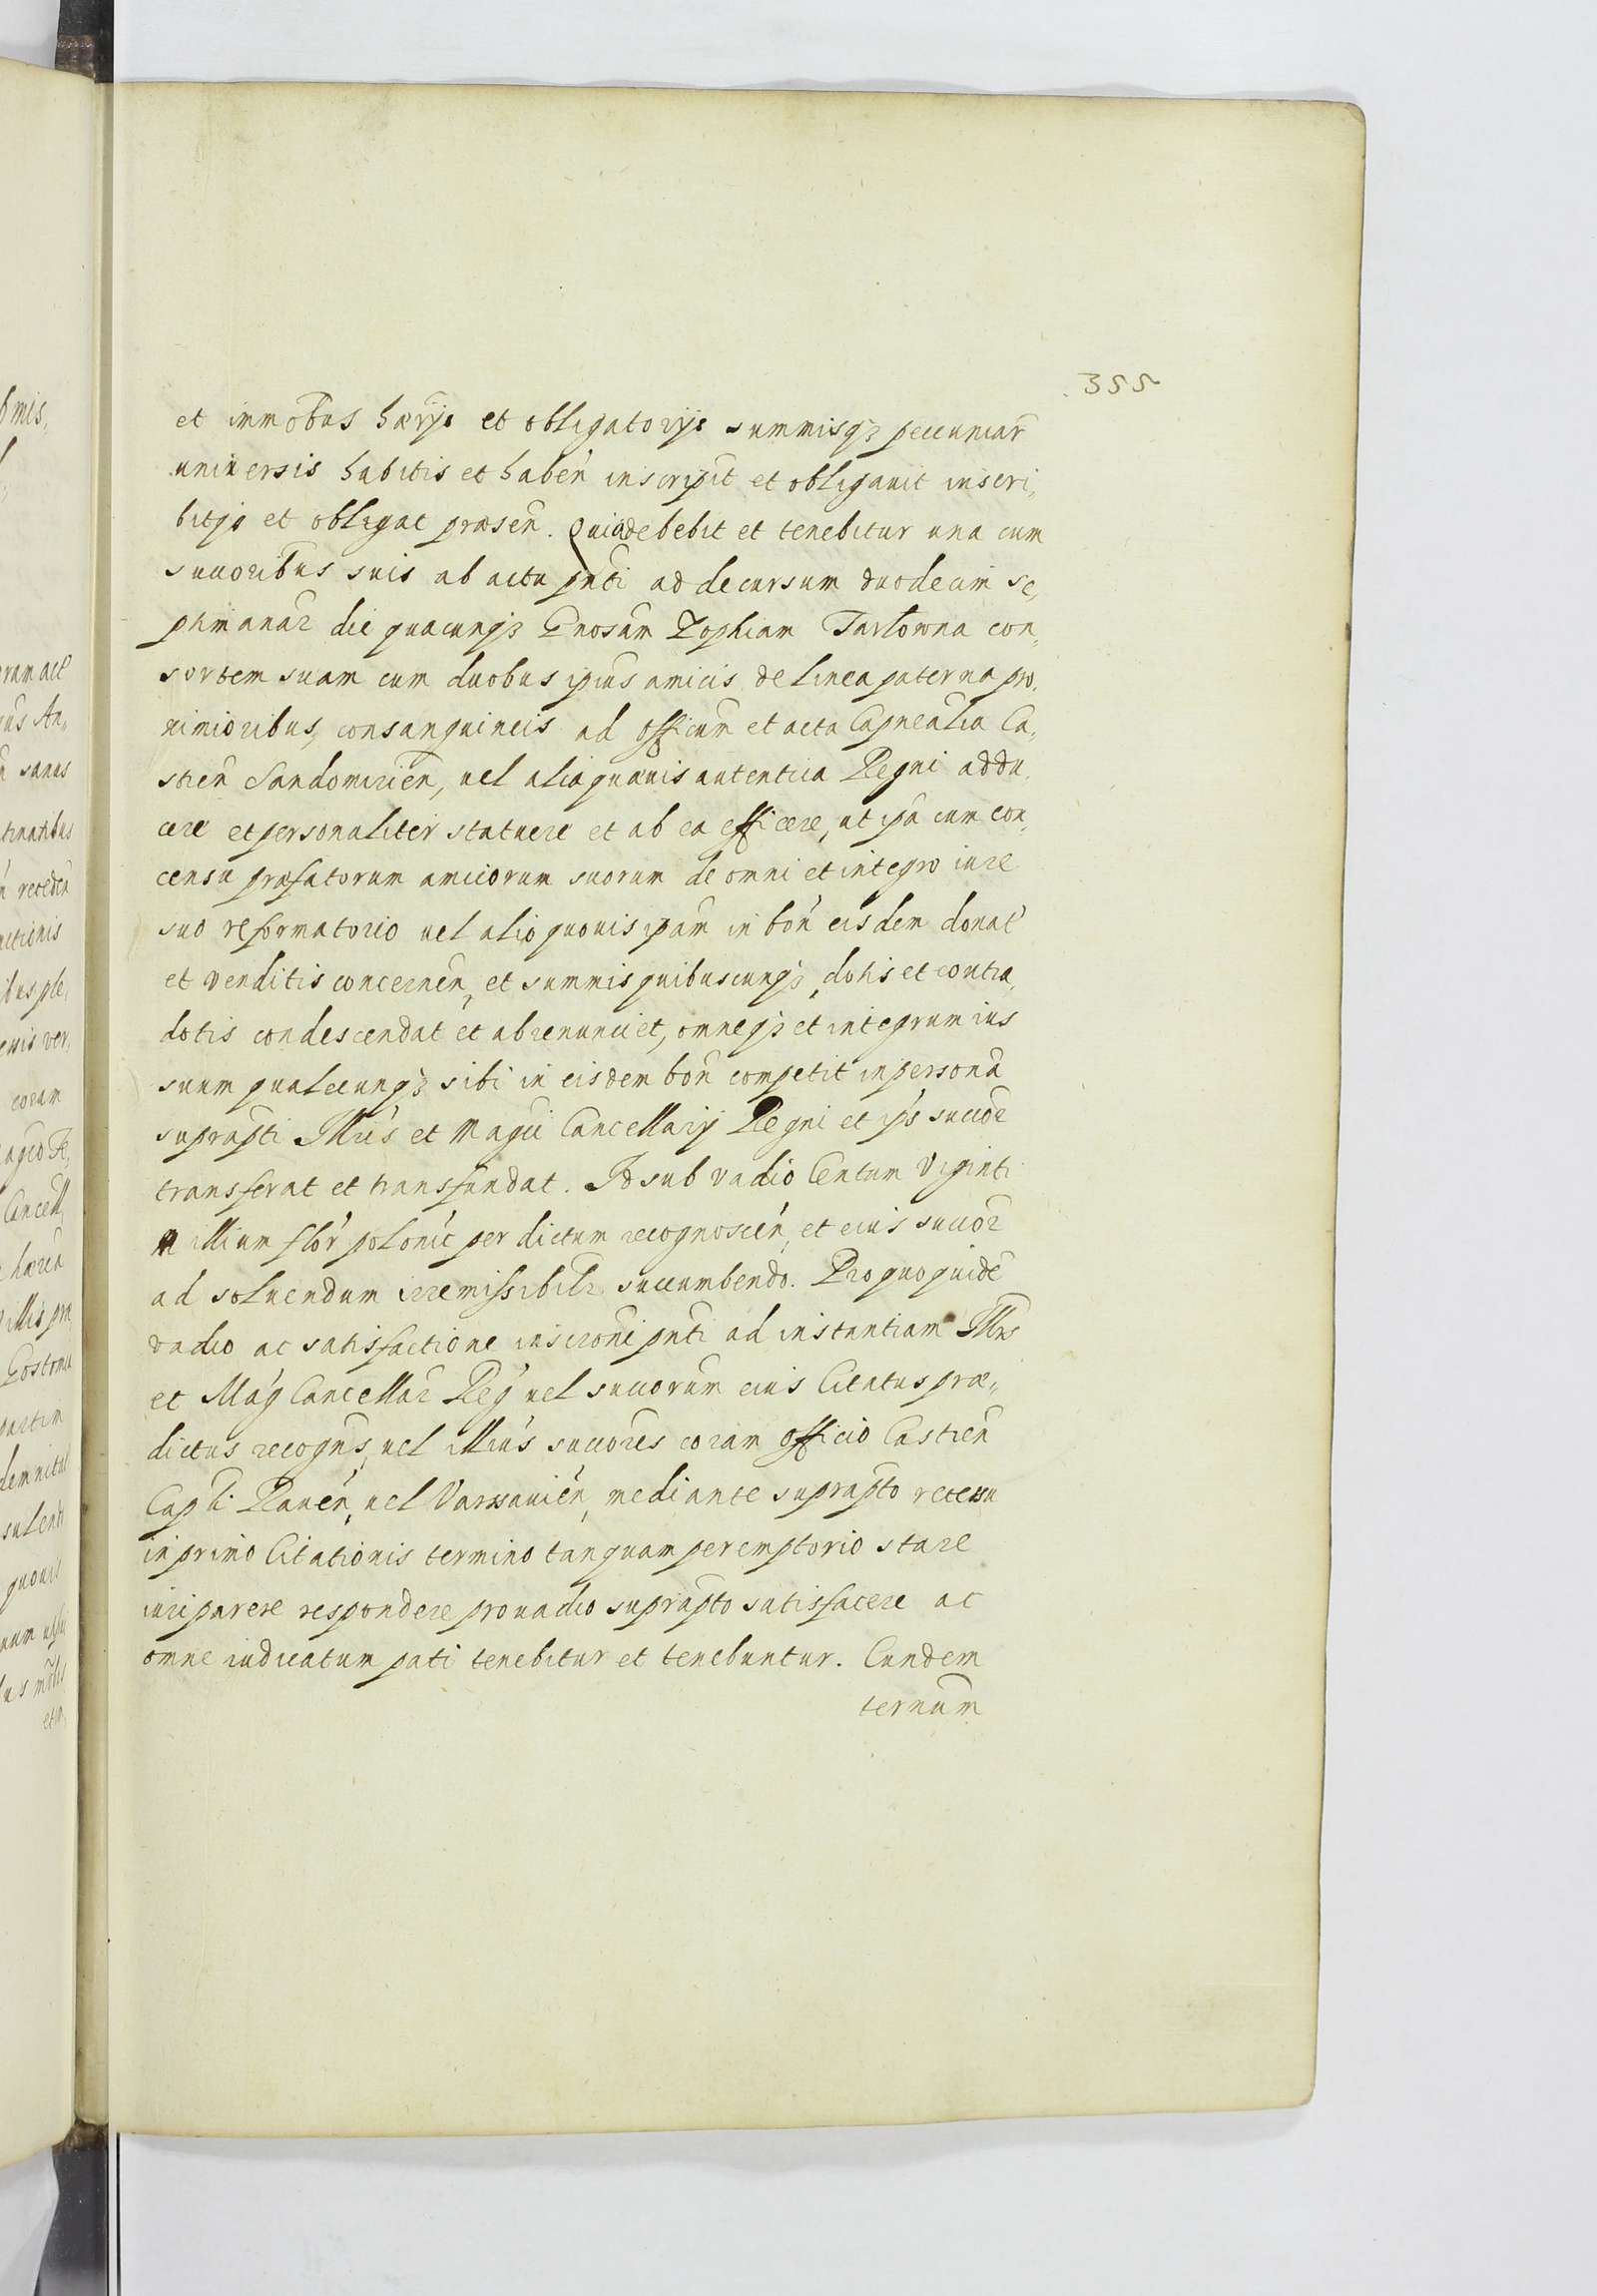 355
et immobus hærijs et obligatorijs summisq3 pecuniar
universis habitis et habeń inscripsit et obligauit inscri„
bitq3 et obligat præseñ. Quia debebit et tenebitur una cum
succoribus suis ab actu pnti ad decursum duodecim se„
ptimanar die quacunq3 Gnosam Zophiam Tarłowna con„
sortem suam cum duobus ipius amicis de linea paterna pro„
ximioribus, consanguineis ad officium et acta Capnealia Ca„
streñ Sandomirieñ, uel alia quæuis autentica Regni addu„
cere et personaliter statuere et ab ea efficere, ut ipa cum con„
censu præfatorum amicorum suorum de omni et integro iure
suo reformatorio uel alio quouis ipam in boñ eisdem donat
et venditis concerneñ, et summis quibuscunq3, dotis et contra„
dotis condescendat et abrenunciet, omneq3 et integrum ius
suum qualecunq3 sibi in eisdem boñ competit in persona
suprapti Illris et Magci Cancellarij Regni et ips succor
transferat et transfundat. Id sub vadio Centum Viginti
Millium flor polonic per dictum recognosceń, et eius succor
ad soluendum irremissibilr succumbendo. Pro quo quidē
vadio ac satisfactione inscroni pnti ad instantiam Illris
et Mag Cancellar Reg uel succorum eius Citatus præ„
dictus recogns, uel illius succores coram officio Castreñ
Capli: Raueñ, uel Varssauieñ, mediante suprapto recessu
in primo Citationis termino tanquam peremptorio stare
iuri parere respondere pro uadio suprapto satisfacere ac
omne iudicatum pati tenebitur et tenebuntur. Eundem
ternum